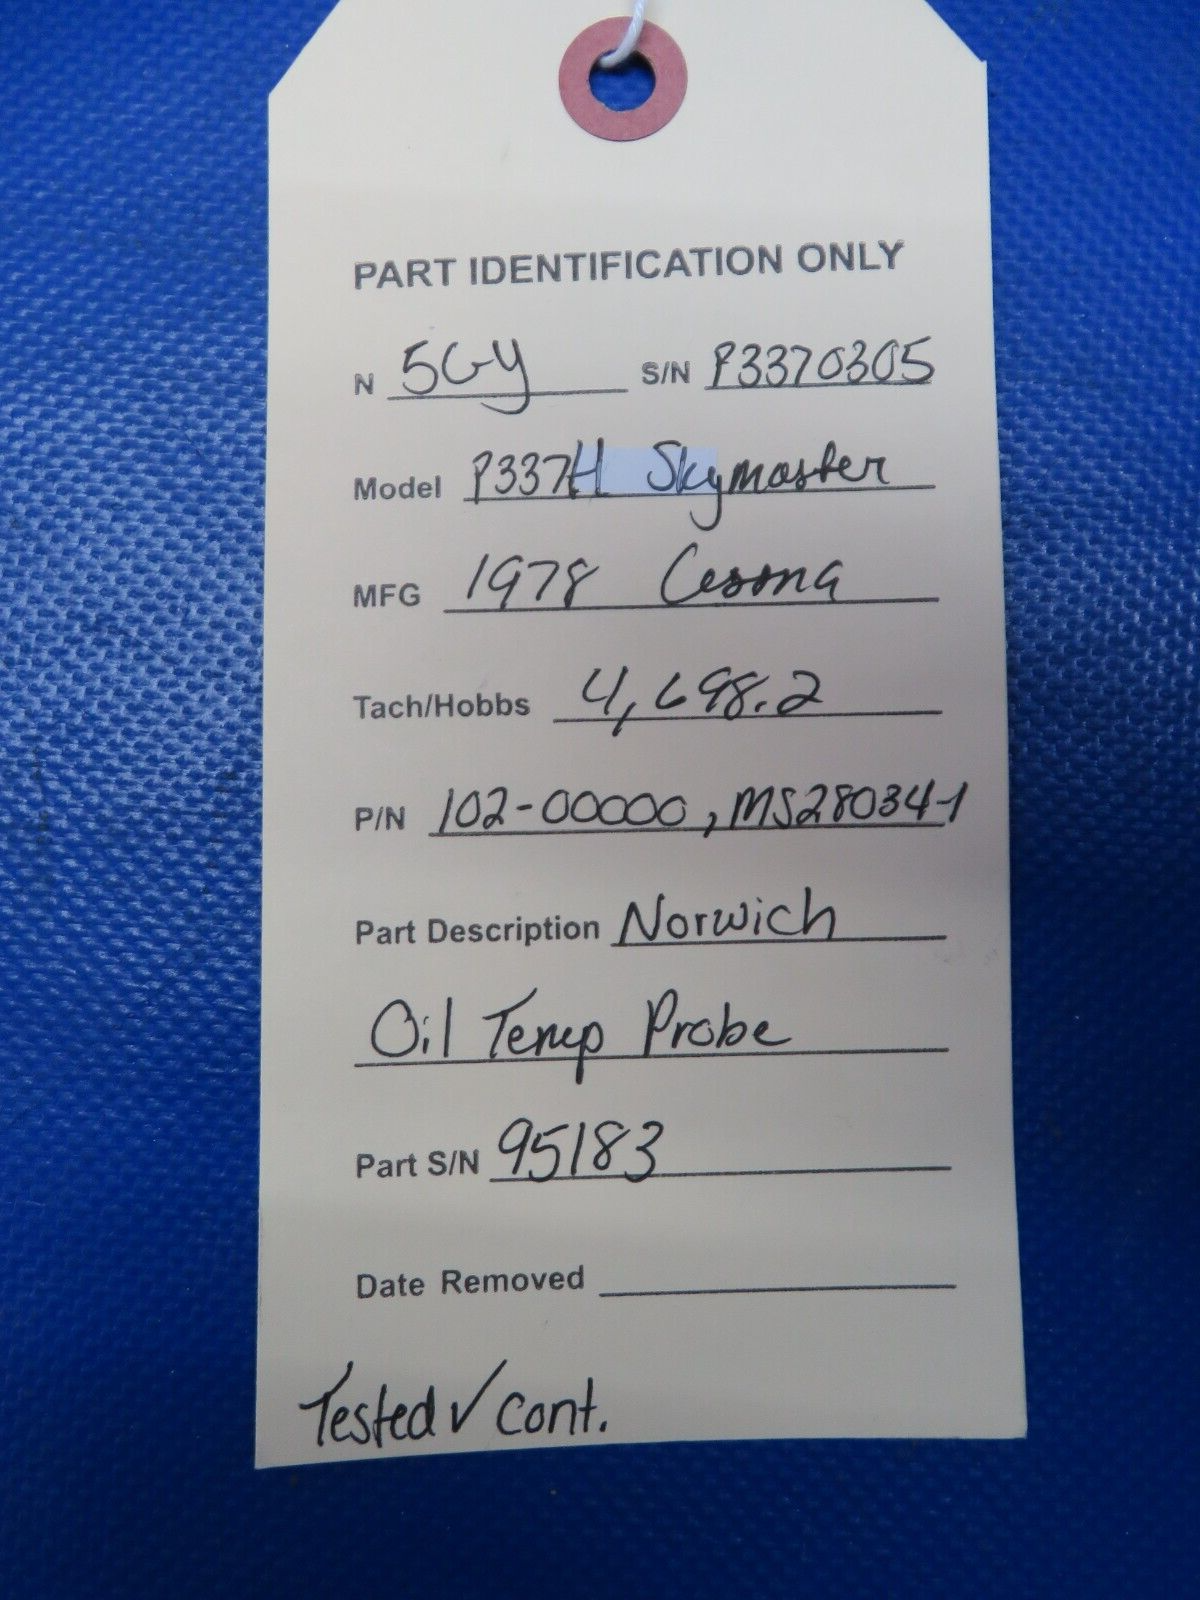 PART IDENTIFICATION ONLY
N 5GY S/N P3370305
Model P337H Skymaster
MFG 1978 Cessna
Tach/Hobbs 4,698.2
P/N 102-00000, MS28034-1
Part Description Norwich
Oil Temp Probe
Part S/N 95183
Date Removed
Tested ✓ cont.